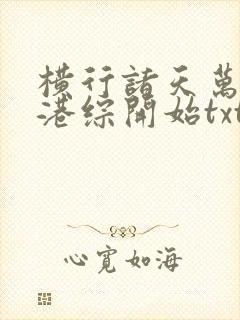 橫行諸天萬
港綜開始txt
心寬如海